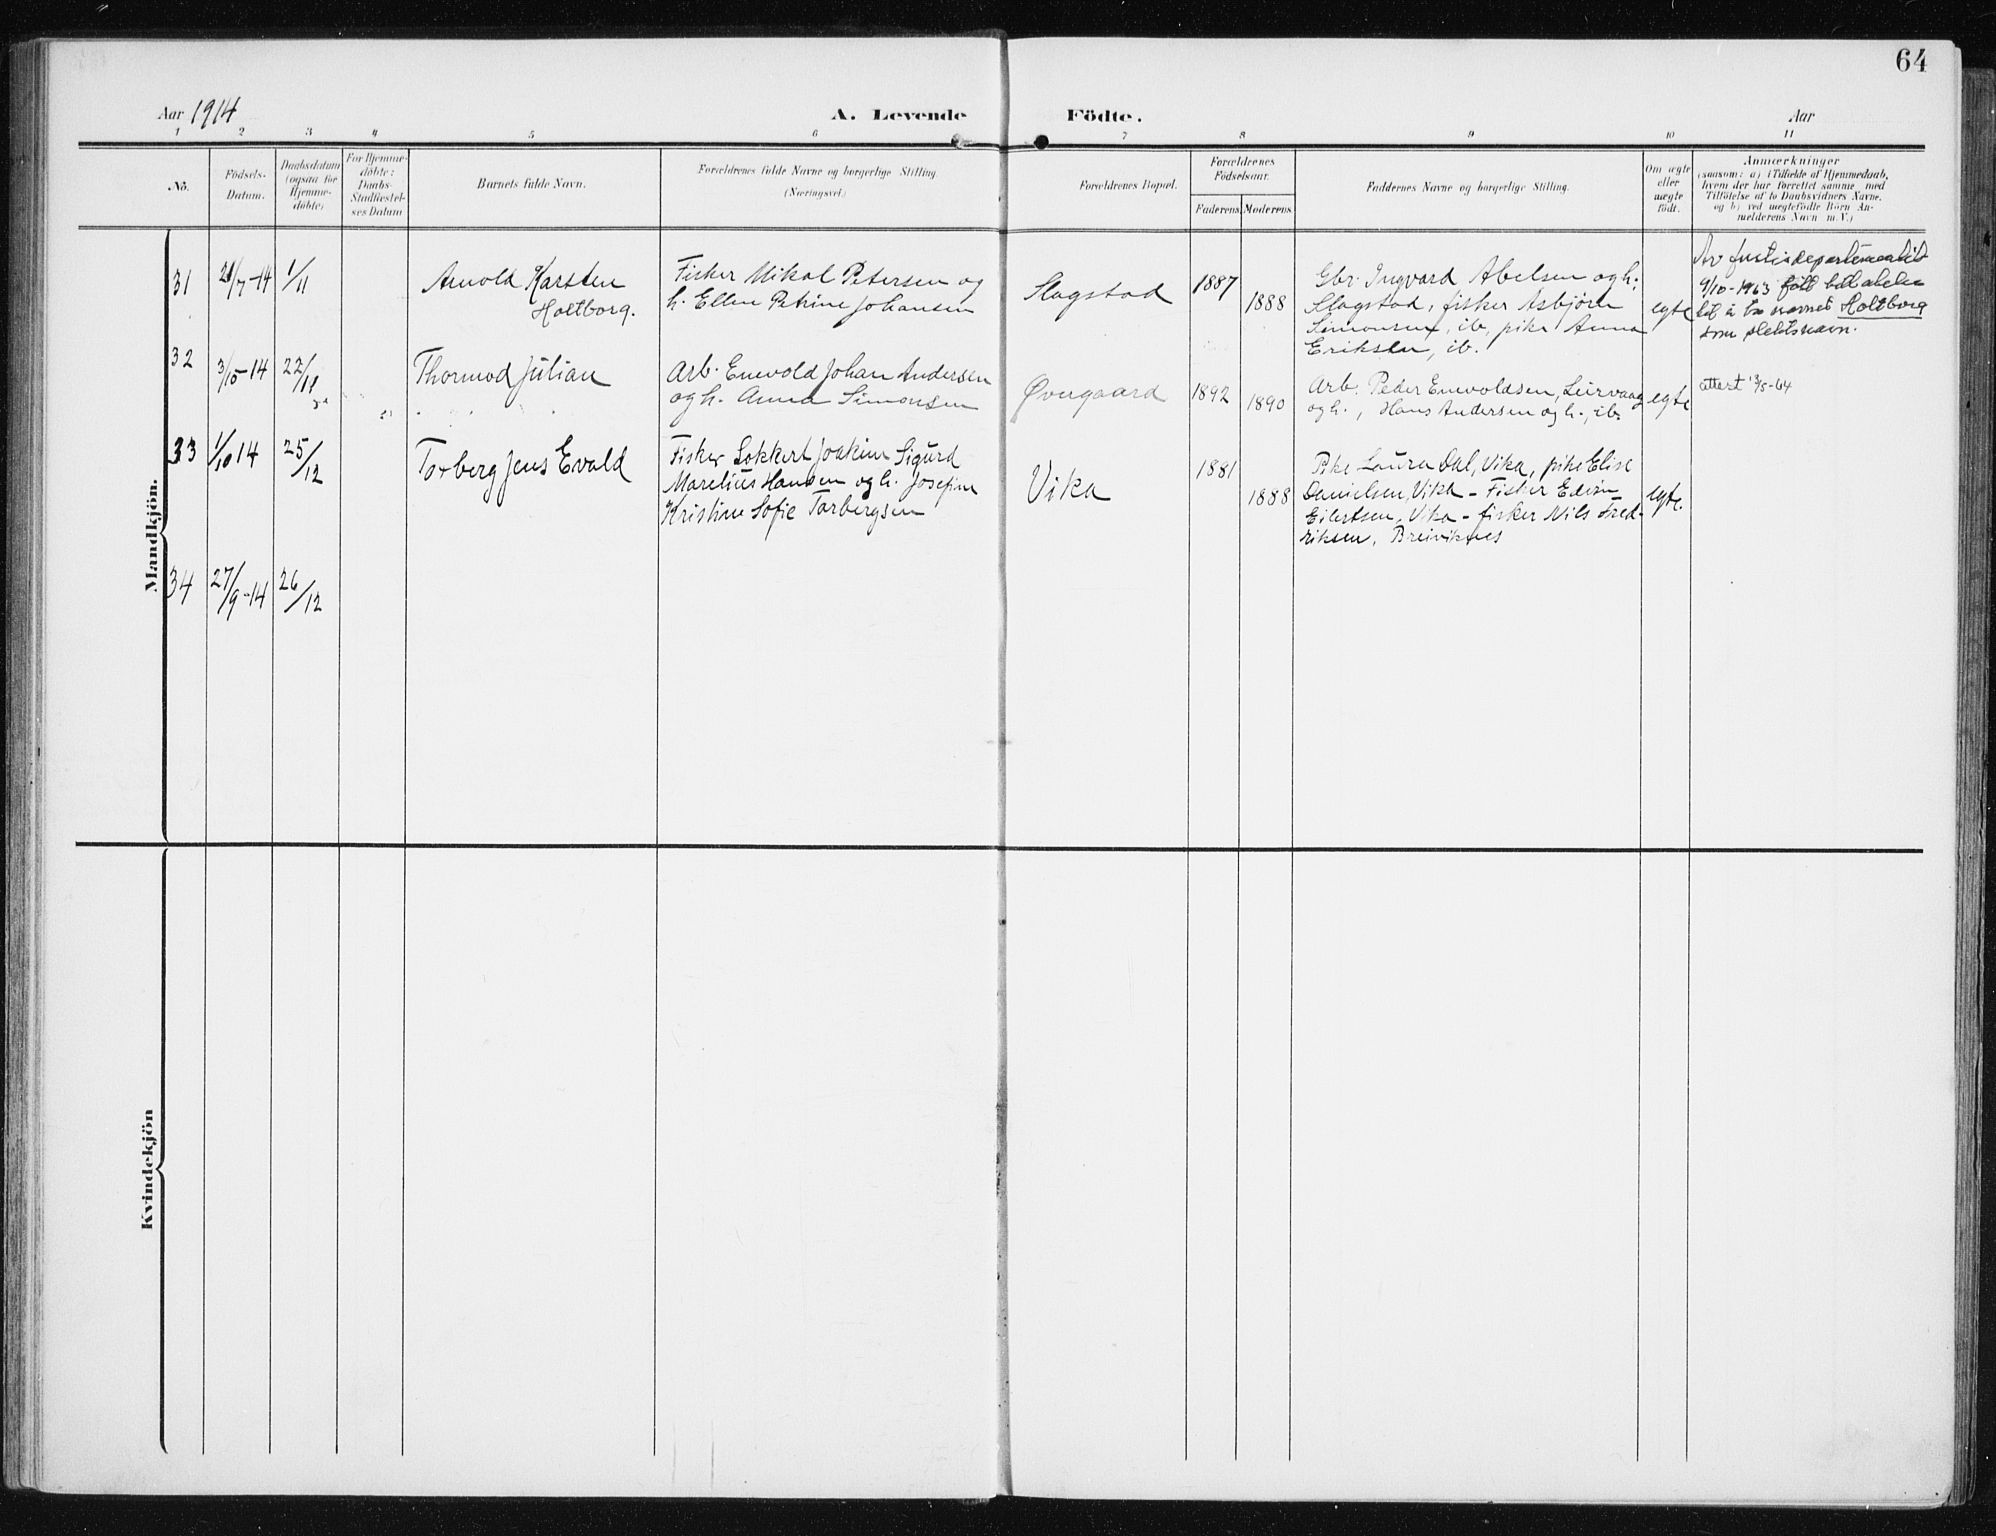 64
Aar 1914
A. Levende Födte.
Aar
1 2 3 4 5 6 7 8 9 10 11
No.
Födsels-
Datum.
Daabsdatum
(ogsaa for
Hjemme-
döbte)
For Hjemme-
döbte:
Daabs-
Stadfæstel-
ses Datum
Barnets fulde Navn.
Forældrenes fulde Navne og borgerlige Stilling.
(Næringsvei.)
Forældrenes Bopæl.
Forældrenes
Födselsaar.
Faderens
Moderens
Faddernes Navne og borgerlige Stilling.
Om ægte
eller
uægte
födt.
Anmærkninger
(saasom: a) i Tilfælde af Hjemmedaab,
hvem der har forrettet samme, med
Tilföielse af to Daabsvidners Navne,
og b) ved uægtefödte Börn An-
melderens Navn m.V.)
Mandkjön.
31
/7-14
1/11
Arnold Karsten
Holtborg.
Fisker Mikal Petersen og
h. Ellen Petrine Johansen
Slagstad
1887
1888
Gbr. Ingvard Abelsen og h.,
Slagstad, fisker Asbjörn
Simonsen, ib, pike Anna
Eriksen, ib.
egte
Av justisdepartementet
9/10-1963 fått
til å ta navnet Holtborg
som slektsnavn.
32
3/10-14
22/11
Thormod Julian
Arb. Enevold Johan Andersen
og h. Anna Simonsen
Øvergaard
1892
1890
Arb. Peder Enevoldsen, Leirvaag
og h., Hans Andersen og h., ib.
egte
attest 13/5-64
33
1/10 14
25/12
Torberg Jens Evald
Fisker Lokkert Joakim Sigurd
Marelius Hansen og h. Josefine
Kristine Sofie Torbergsen
Vika
1881
1888
Pike Laura Dal, Vika, pike Elise
Danielsen, Vika - Fisker Edvin
Eilertsen, Vika - fisker Nils Fred-
riksen, Breiviknes
egte.
34
27/9-14
26/12
Kvindekjön